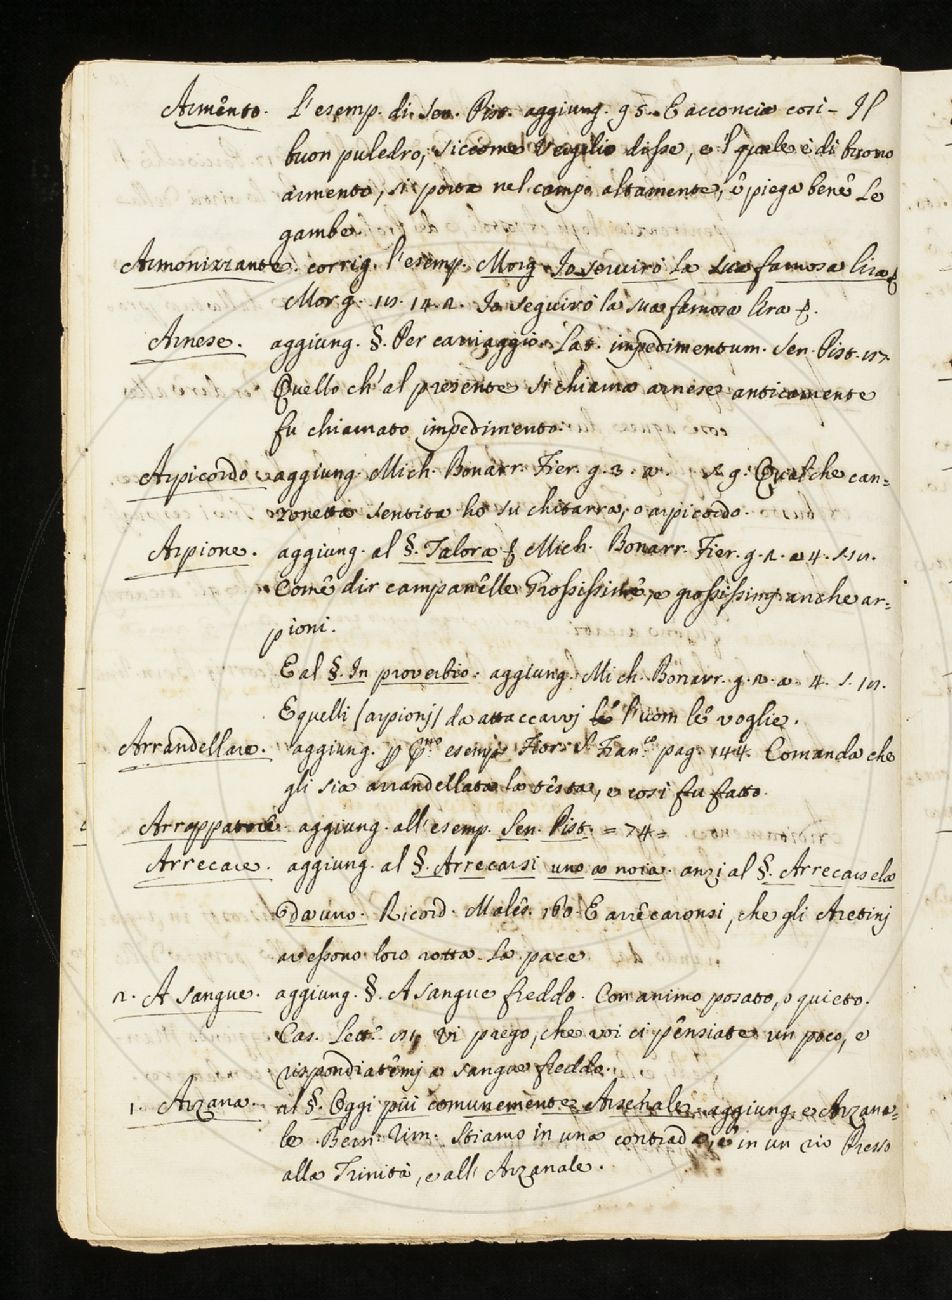 Armẽnto. L'esemp. di Sen. Pist. aggiung. 95. E acconcia così - Il
buon puledro, siccome Vergilio disse, e 'l quale è di buono
armento, si porta nel campo altamente, e piega bene le
gambe.
Armonizzante. corrig. l'esemp. Morg. Io serviro la sua famosa lira
Morg. 14. 2. Io seguirò la sua famosa lira
Arnese. aggiung. §. Per carriaggio. Lat. impedimentum. Sen. Pist.
Quello ch' al presente si chiama arnese anticamente
fu chiamato impedimento.
Arpicordo aggiung. Mich. Bonarr. Fier. g. 3. a. s. 9. Qualche can=
zonetta sentita ho su chitarra, o arpicordo.
Arpione. aggiung. al §. Talora Mich. Bonarr. Fier. g. 2. a 4. s.
Come dir campanelle grossissime, e grossissimi anche ar=
pioni.
E al §. In proverbio. aggiung. Mich. Bonarr. g. 2. a. 4. s.
E quelli (arpionj) da attaccarvj l'uom le voglie.
Arrandellare. aggiung. esemp. Fior. S. Fran.co pag. 144. Comanda che
gli sia arrandellata la testa, e così fu fatto.
aggiung. all' esemp. Sen. Pist. = 74 =
Arrecare. aggiung. al §. Arrecarsi uno a noia. anzi al §. Arrecarsela
da uno. Ricord. Males. 160. E arrecaronsi, che gli Aretinj
avessono loro rotta la pace
2. A sangue. aggiung. §. A sangue freddo. Con animo posato, o quieto.
Cas. Lett. Vi priego, che voi ci pensiate un poco, e
rispondiatemj a sangue freddo.
1. Arzana. al §. Oggi più comunemente Arsenale, aggiung. e Arzana=
le. Bern. Rim. Stiamo in una contrada, e in un rio Presso
alla Trinità, e all' Arzanale.